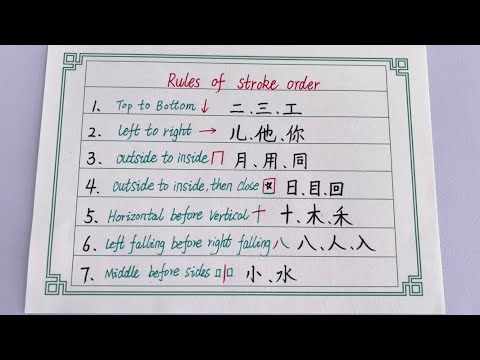 Rules of stroke order
1. Top to Bottom ↓ 二、三、工
2. left to right → 儿、他、你
3. outside to inside 冂 月、用、同
4. outside to inside, then close 日、目、回
5. Horizontal before vertical 十 十、木、禾
6. Left falling before right falling 八 八、人、入
7. Middle before sides 小、水